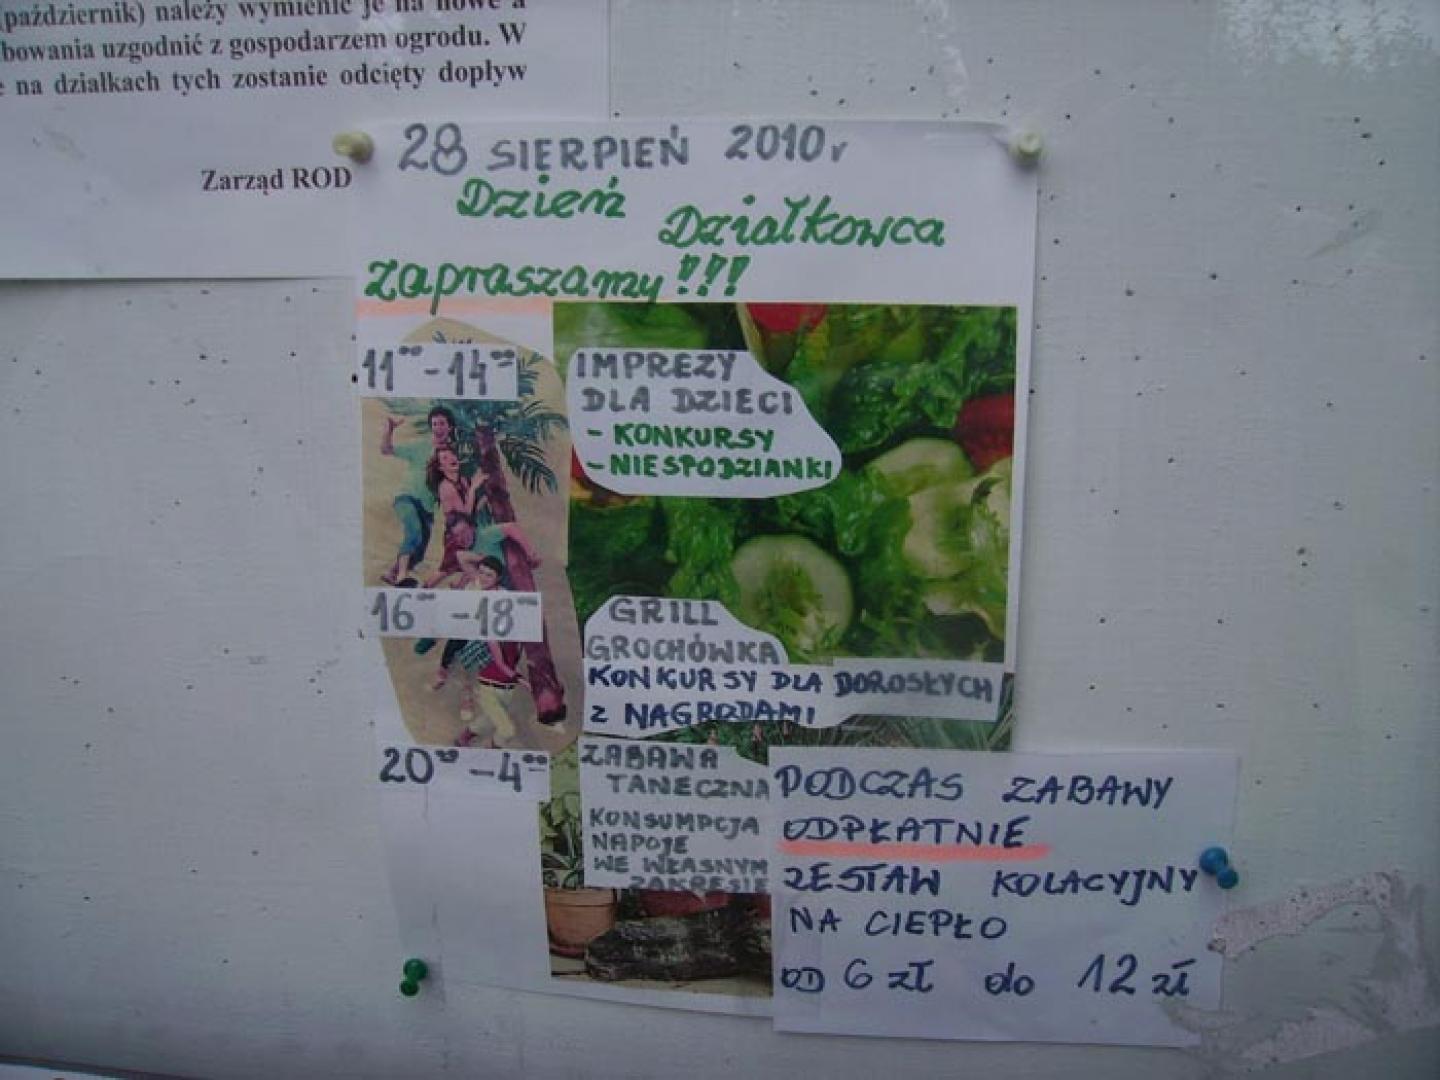 (październik) należy wymienić je na nowe a
bowania uzgodnić z gospodarzem ogrodu. W
e na działkach tych zostanie odcięty dopływ
Zarząd ROD
28 SIERPIEŃ 2010 r
Dzień Działkowca
zapraszamy!!!
11⁰⁰-14⁰⁰
IMPREZY
DLA DZIECI
- KONKURSY
- NIESPODZIANKI
16⁰⁰-18⁰⁰
GRILL
GROCHÓWKA
KONKURSY DLA DOROSŁYCH
Z NAGRODAMI
20⁰⁰-4⁰⁰
ZABAWA
TANECZNA
KONSUMPCJA
NAPOJE
WE WŁASNYM
ZAKRESIE
PODCZAS ZABAWY
ODPŁATNIE
ZESTAW KOLACYJNY
NA CIEPŁO
OD 6 zł do 12 zł